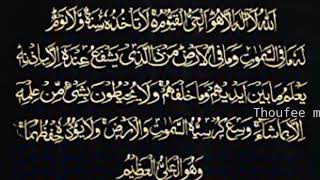 الله لا إله إلا هو الحي القيوم لا تأخذه سنة ولا نوم
له ما في السموات وما في الأرض من ذا الذي يشفع عنده إلا بإذنه
يعلم ما بين أيديهم وما خلفهم ولا يحيطون بشيء من علمه
إلا بما شاء وسع كرسيه السموات والأرض ولا يؤده حفظهما
وهو العلي العظيم
Thoufee m